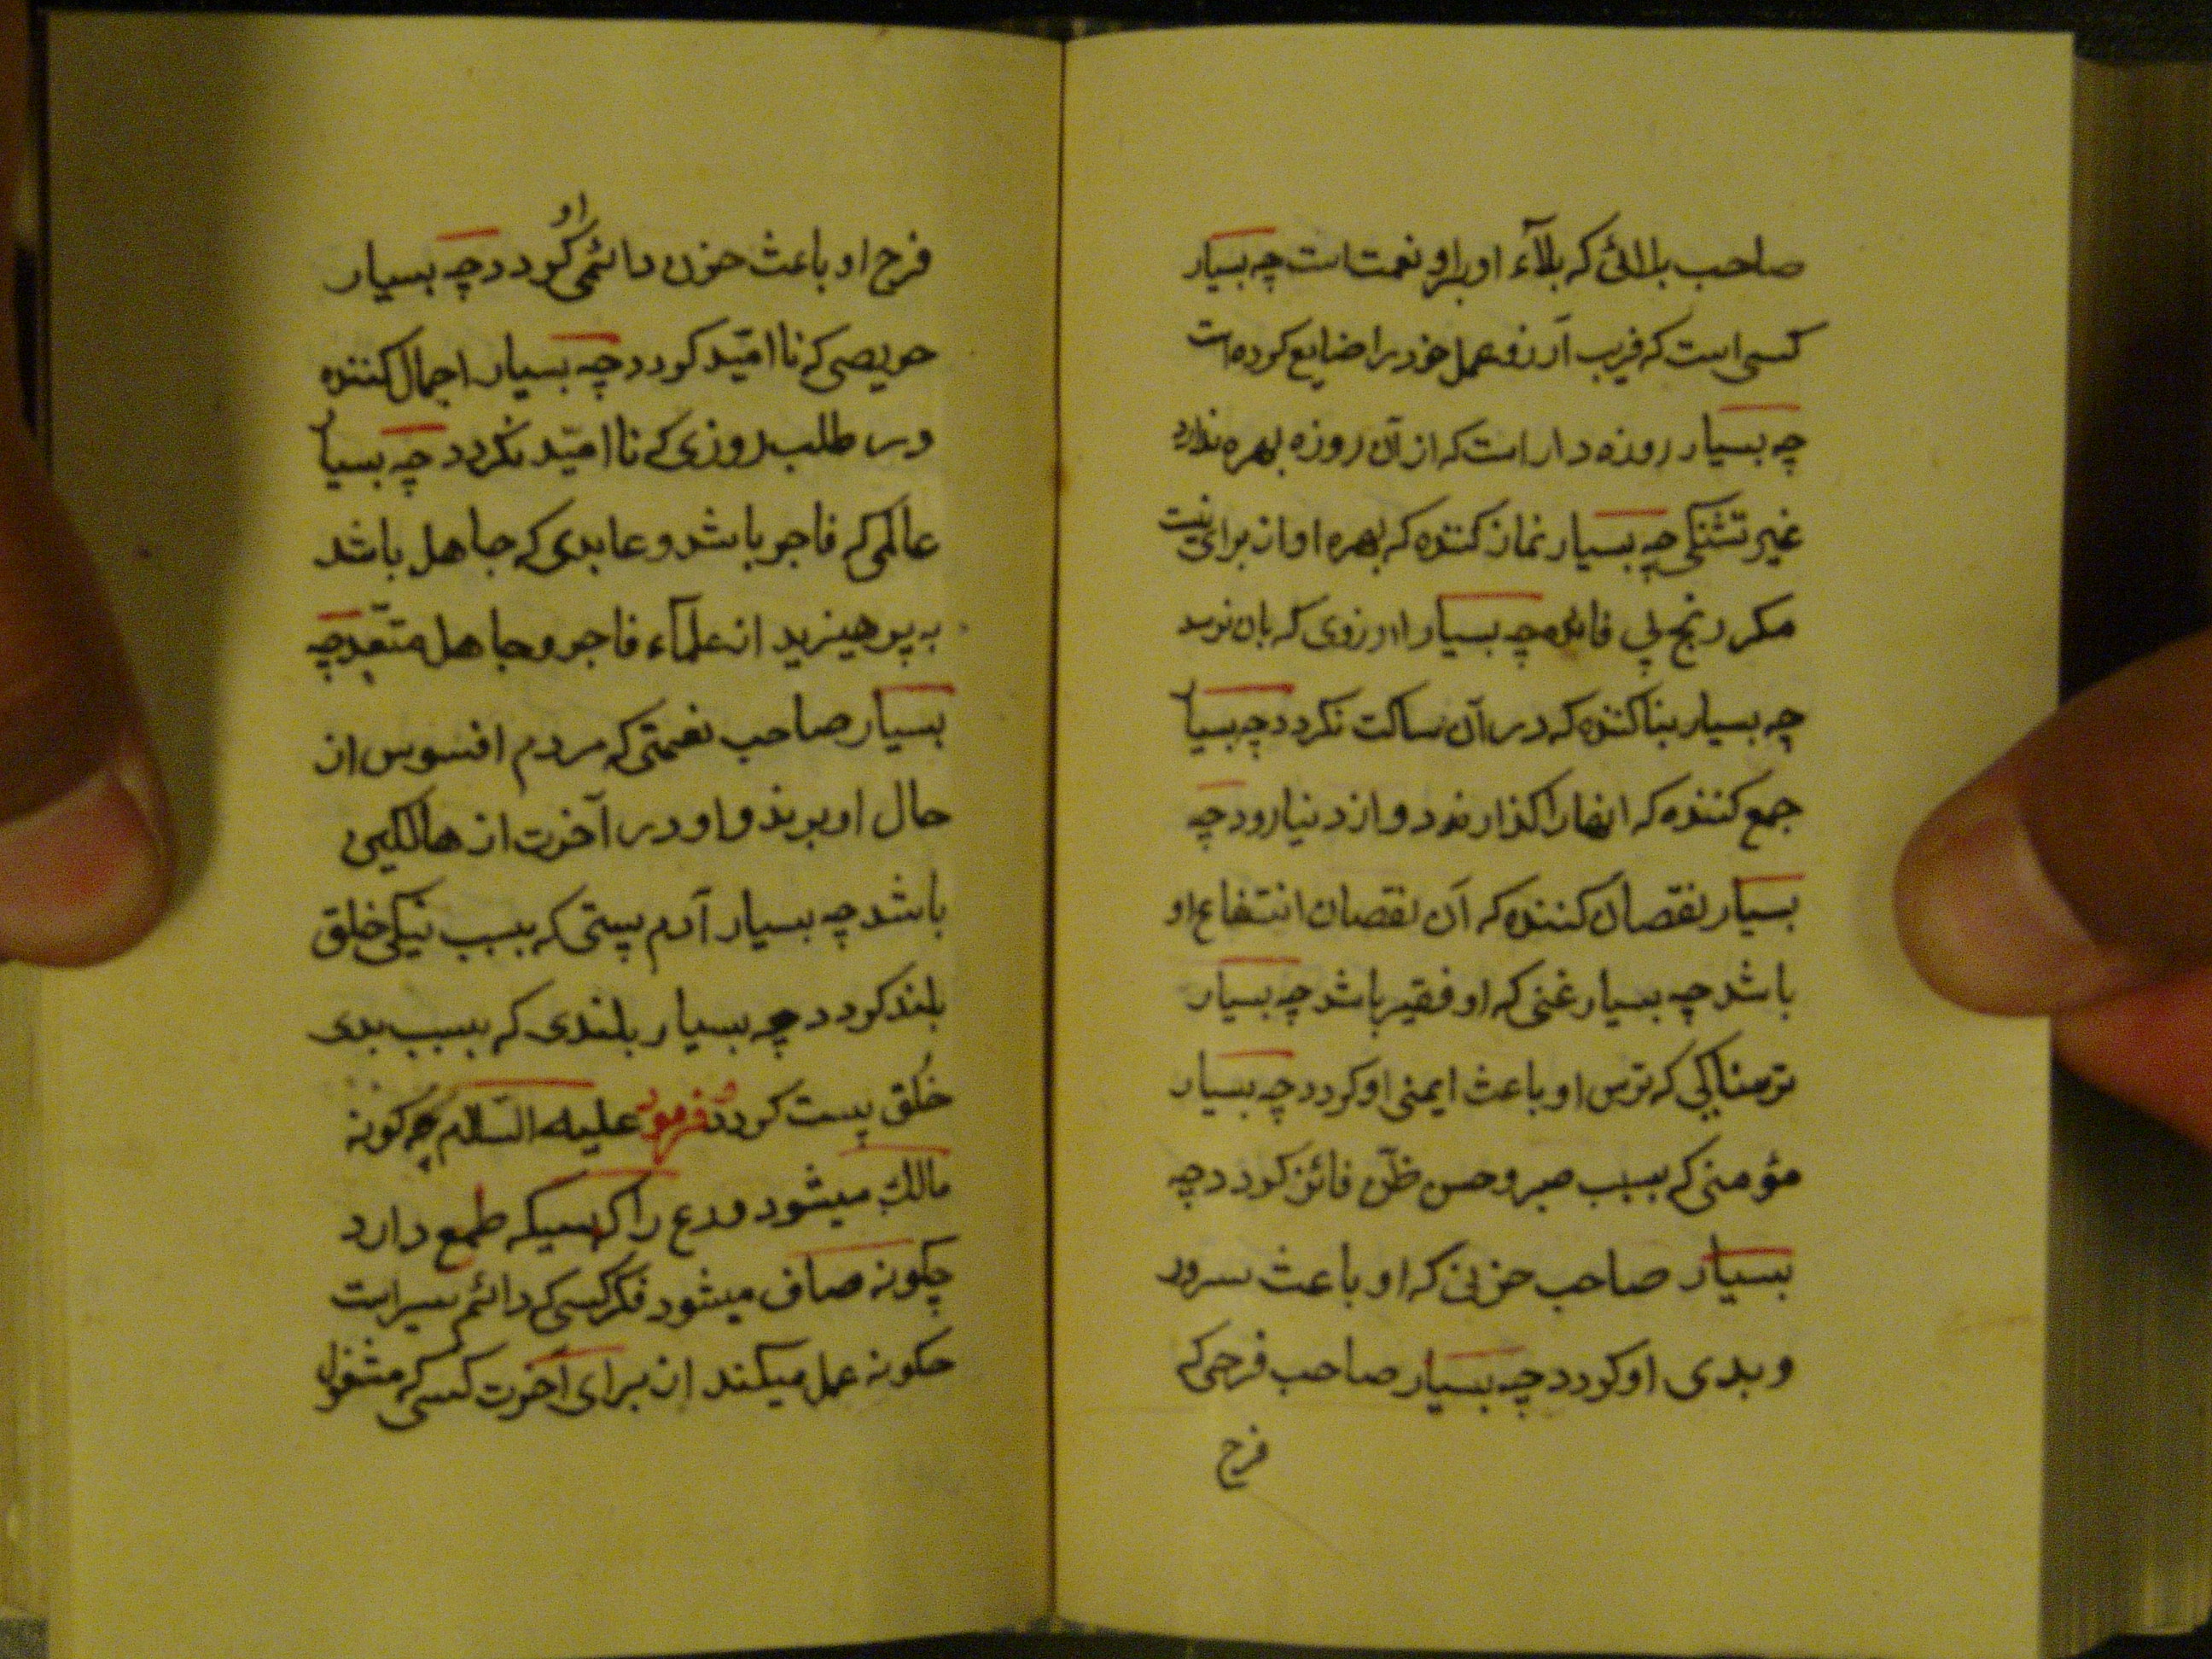 صاحب بلائی که بلآء او براو نعمتاست چه بسیار
کسی است که فریب آرزو عمل خود را ضایع کرده است
چه بسیار روزه دار است که از آن روزه بهره ندارد
غیر تشنکی چه بسیار نماز کننده که بهره او از برای نیست
مکر رنج بی فائده چه بسیار ارزوی که بان نرسد
چه بسیار بنا کننده که در آن ساکت نکردد چه بسیار
جمع کننده که انها را کذارند و از دنیا رود چه
بسیار نقصان کننده که آن نقصان انتفاع او
باشد چه بسیار غنی که او فقیر باشد چه بسیار
ترسناکی که ترس او باعث ایمنی او کردد چه بسیار
مؤمنی که بسبب صبر و حسن ظنّ فائز کردد چه
بسیار صاحب حزنی که او باعث سرور
و بدی او کردد چه بسیار صاحب فرحی که
فرح
فرح او باعث حزن دائمی او کردد چه بسیار
حریصی که نا امّید کردد چه بسیار اجمال کننده
در طلب روزی که نا امیّد نکردد چه بسیار
عالمی که فاجر باشد و عابدی که جاهل باشد
به پرهیزید از علمآء فاجر و جاهل متعّبد چه
بسیار صاحب نعمتی که مردم افسوس از
حال او برند و او در آخرت از هالکین
باشد چه بسیار آدم پستی که بسبب نیکی خلق
بلند کردد چه بسیار بلندی که بسبب بدی
خُلق پست کردد فرمود علیه السّلام چه کونه
مالک میشود ورع را کسیکه طمع دارد
چکونه صاف میشود فکر کسی که دائم سیر است
چکونه عمل میکند از برای آخرت کسی که مشغول